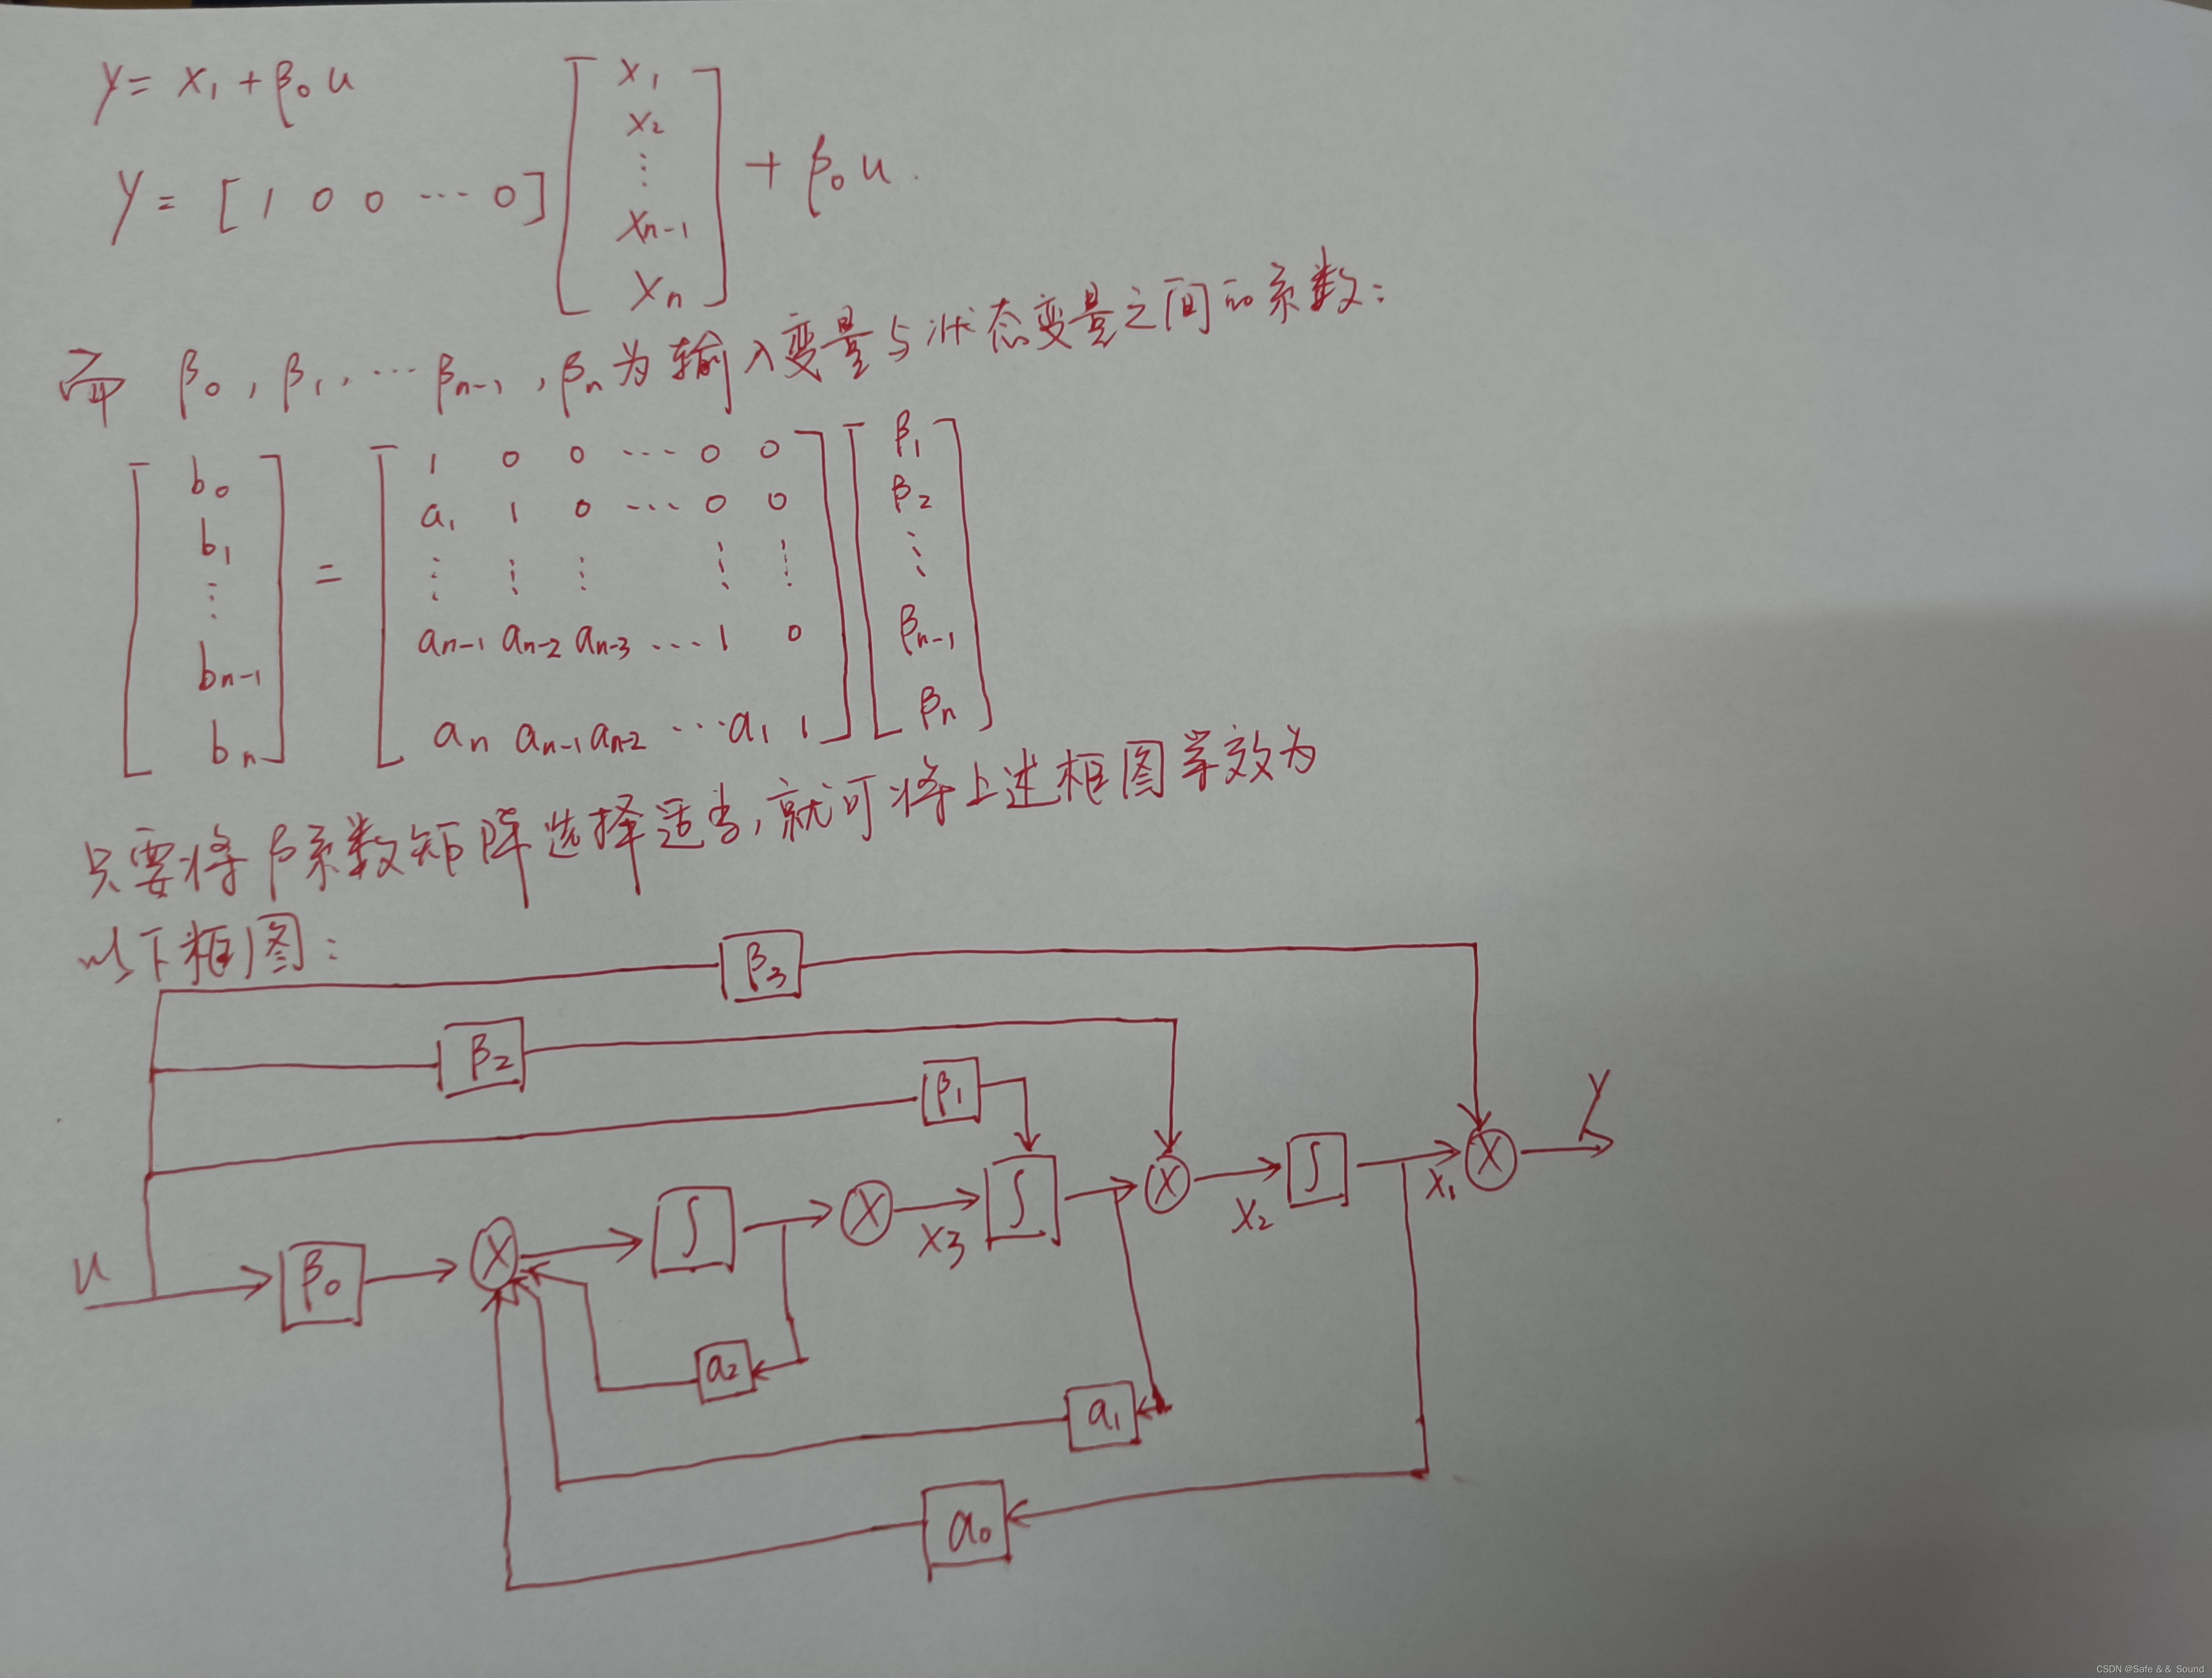 y = x₁ + β₀u
y = [1 0 0 ⋯ 0] [x₁ x₂ ⋮ xₙ₋₁ xₙ] + β₀u.
而 β₀, β₁, ⋯ βₙ₋₁, βₙ为输入变量与状态变量之间的系数:
[b₀ b₁ ⋮ bₙ₋₁ bₙ] = [1 0 0 ⋯ 0 0; a₁ 1 0 ⋯ 0 0; ⋮ ⋮ ⋮ ⋮ ⋮; aₙ₋₁ aₙ₋₂ aₙ₋₃ ⋯ 1 0; aₙ aₙ₋₁ aₙ₋₂ ⋯ a₁ 1] [β₁ β₂ ⋮ βₙ₋₁ βₙ]
只要将β系数矩阵选择适当,就可将上述框图等效为
以下框图:
β₃
β₂
β₁
y
u β₀ ∫ x₃ ∫ x₂ ∫ x₁
a₂
a₁
a₀
CSDN @Safe && Sound